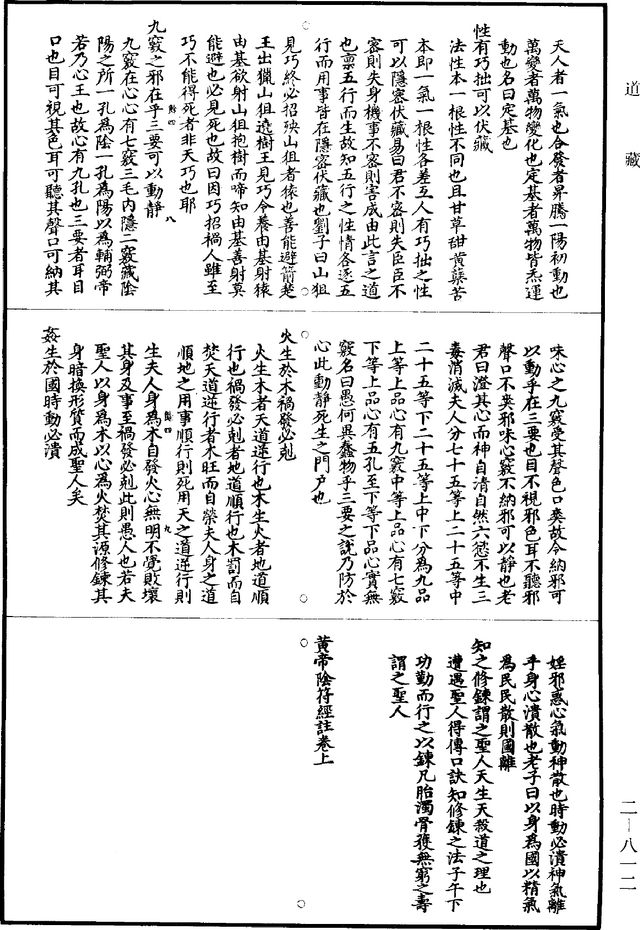 道藏
天人者一氣也合發者昇騰一陽初動也
萬變者萬物變化也定基者萬物皆悉運
動也名曰定基也
性有巧拙可以伏藏
法性本一根性不同也且甘草甜黄蘗苦
本即一氣一根性各差互人有巧拙之性
可以隱密伏藏易曰君不密則失臣臣不
密則失身機事不密則害成由此言之道
也禀五行而生故知五行之性情各逐五
行而用事皆在隱密伏藏也劉子曰山狙
見巧終必招殃山狙者猿也善能避箭楚
王出獵山狙遶樹王見巧令養由基射猿
由基欲射山狙抱樹而啼知由基善射莫
能避也必見死也故曰因巧招禍人雖至
巧不能得死者非天巧也耶
八
九竅之邪在乎三要可以動靜
九竅在心心有七竅三毛内隱二竅藏陰
陽之所一孔為陰一孔為陽以為輔弼帝
若乃心王也故心有九孔也三要者耳目
口也目可視其色耳可聽其聲口可納其
味心之九竅受其聲色口爽故令納邪可
以動乎在三要也目不視邪色耳不聽邪
聲口不爽邪味心竅不納邪可以靜也老
君曰澄其心而神自清自然六慾不生三
毒消滅夫人分七十五等上二十五等中
二十五等下二十五等上中下分為九品
上等上品心有九竅中等上品心有七竅
下等上品心有五孔至下等下品心實無
竅名曰愚何異蠢物乎三要之說乃防於
心此動靜死生之門户也
火生於木禍發必剋
火生木者天道逆行也木生火者地道順
行也禍發必剋者地道順行也木罰而自
焚天道逆行者木旺而自榮夫人身之道
順地之用事順行則死用天之道逆行則
九
生夫人身為木自發火心無明不覺敗壞
其身及事至禍發必剋此則愚人也若夫
聖人以身為木以心為火焚其源修鍊其
身暗換形質而成聖人矣
姦生於國時動必潰
婬邪惑心氣動神散也時動必潰神氣離
乎身心潰散也老子曰以身為國以精氣
為民民散則國離
知之修鍊謂之聖人天生天殺道之理也
遭遇聖人得傳口訣知修鍊之法子午下
功勤而行之以鍊凡胎濁骨獲無窮之壽
謂之聖人
黄帝陰符經註卷上
二－八一二